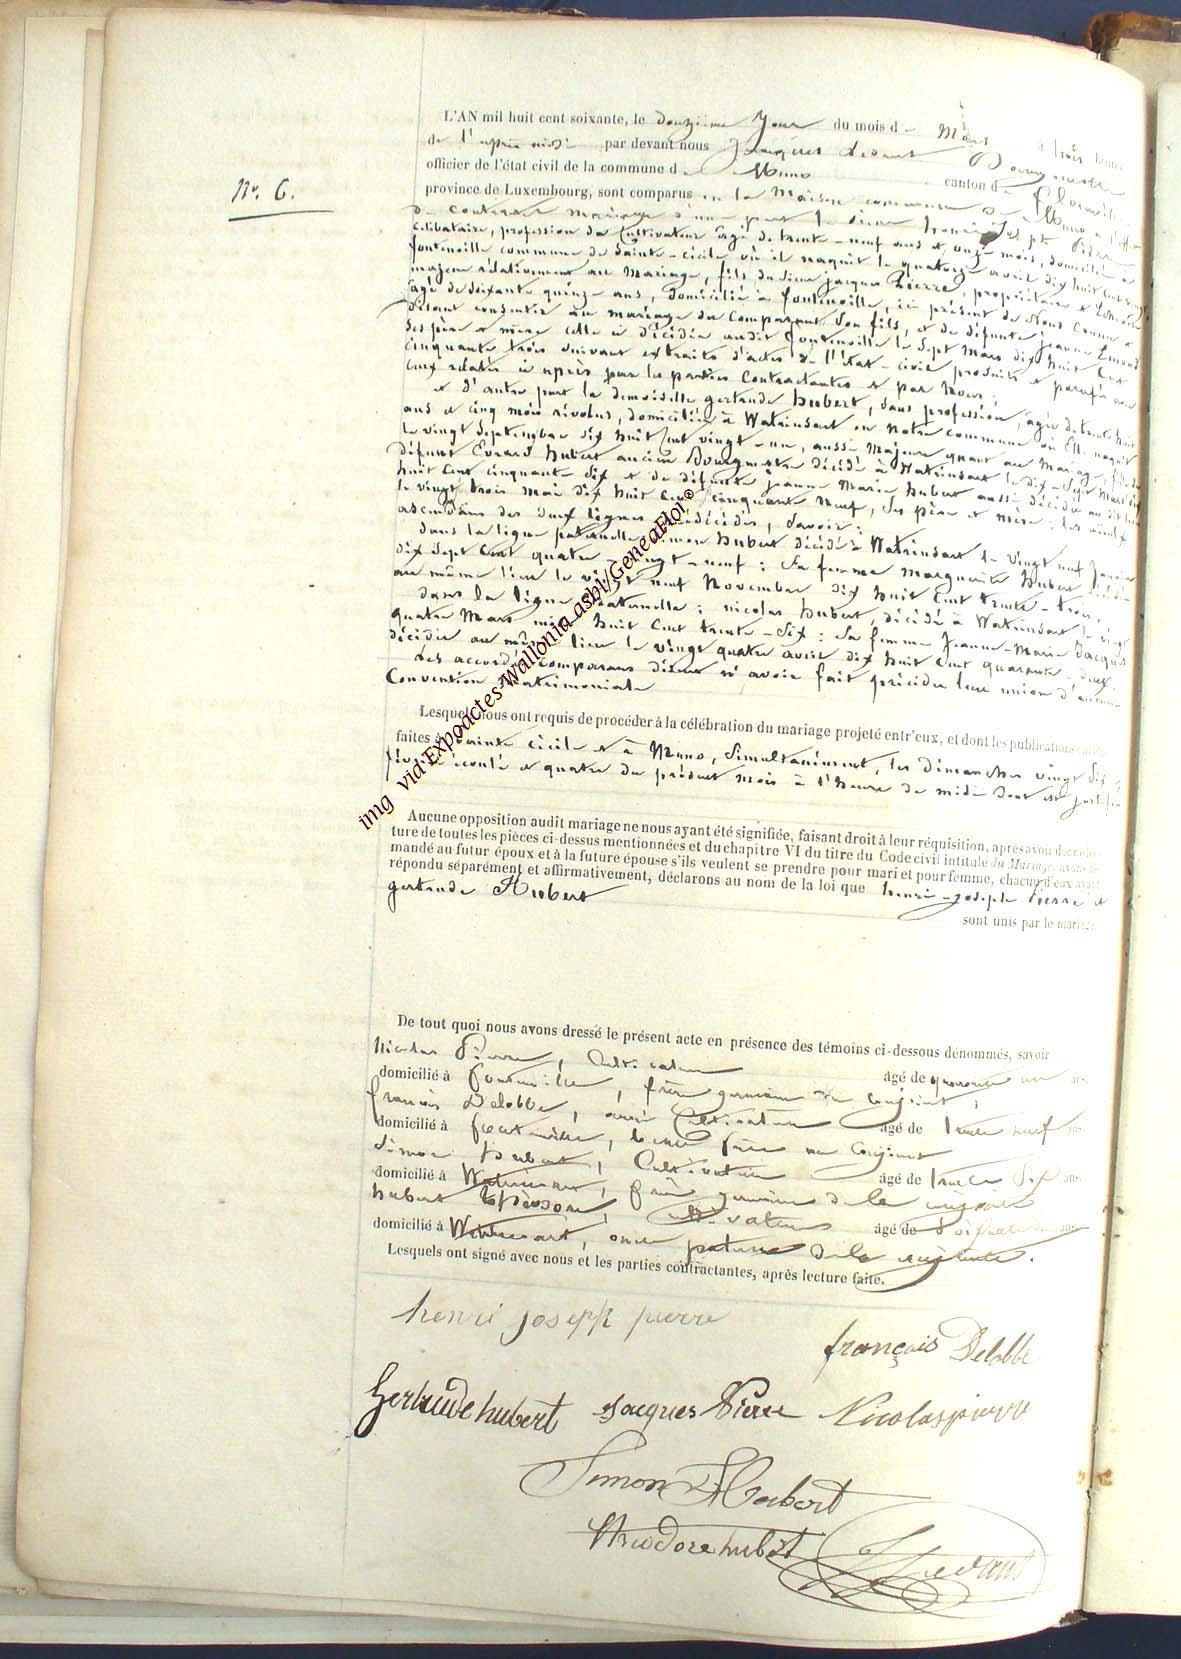 L'AN mil huit cent soixante, le douzième Jour du mois de Mars à trois heures
de l'après midi par devant nous Jacques Bourgmestre
officier de l'état civil de la commune de Muno canton de
Nr. 6.
province de Luxembourg, sont comparus en la Maison commune de Muno à l'effet
de contracter mariage d'une part le sieur henri Joseph Pierre
célibataire, profession de Cultivateur âgé de trente-neuf ans et onze mois, domicilié à
fontenoille commune de Sainte-cécile où il naquit le quatorze avril dix huit cent vingt
majeur rélativement au Mariage, fils du sieur jacques Pierre, propriétaire et
âgé de soixante quinze ans, domicilié à fontenoille, ici présent de nous connu et
disant consentir au mariage du Comparant Son fils, et de défunte jeanne
Ses père et mère celle ci décédée audit fontenoille le Sept Mars dix huit Cent
cinquante trois suivant extraits d'actes de l'état-civil produits et paraphés
ceux relatés ci après par les parties Contractantes et par Nous;
et d'autre part la demoiselle gertrude hubert, sans profession, âgée de trente huit
ans et cinq mois révolus, domiciliée à Watrinsart en notre commune où Elle naquit
le vingt Septembre dix huit Cent vingt-un, aussi Majeure quant au Mariage, fille de
défunt Evrard hubert ancien Bourgmestre décédé à Watrinsart le dix-Sept Mars dix
huit Cent cinquante Six et de défunte jeanne Marie hubert aussi décédée audit lieu
le vingt trois mai dix huit Cent cinquante Neuf, Ses père et Mère; les aïeux
ascendans des deux lignes prédécédés, Savoir:
dans la ligne paternelle, Simon hubert décédé à Watrinsart le vingt neuf Janvier
dix Sept Cent quatre-vingt-neuf: Sa femme marguerite hubert décédée
au même lieu le vingt neuf Novembre dix huit Cent trente-trois,
dans la ligne Maternelle: nicolas hubert, décédé à Watrinsart le vingt
quatre Mars mil huit Cent trente-Six: Sa femme Jeanne-Marie Jacques
décédée au même lieu le vingt quatre avril dix huit Cent quarante-deux.
Les accordés Comparans disent n'avoir fait précéder leur union d'aucune
Convention Matrimoniale
Lesquels nous ont requis de procéder à la célébration du mariage projeté entr'eux, et dont les publications ont été
faites à Sainte cécile et à Muno, Simultanément, les Dimanches vingt Six
février écoulé et quatre du présent mois à l'heure de midi dont est justifié
Aucune opposition audit mariage ne nous ayant été signifiée, faisant droit à leur réquisition, après avoir donné lec-
ture de toutes les pièces ci-dessus mentionnées et du chapitre VI du titre du Code civil intitulé du Mariage, avons de-
mandé au futur époux et à la future épouse s'ils veulent se prendre pour mari et pour femme, chacun d'eux ayant
répondu séparément et affirmativement, déclarons au nom de la loi que henri-joseph Pierre et
gertrude Hubert
sont unis par le mariage.
De tout quoi nous avons dressé le présent acte en présence des témoins ci-dessous dénommés, savoir
Nicolas Pierre, Cultivateur âgé de quarante un ans
domicilié à fontenoille, frère germain du conjoint,
françois Delobbe, aussi Cultivateur âgé de trente neuf ans
domicilié à fontenoille, beau frère au conjoint
Simon hubert, Cultivateur âgé de trente Six ans
domicilié à Watrinsart, frère germain de la conjointe
hubert Théodore, Cultivateur âgé de Soixante ans
domicilié à Watrinsart, oncle paternel de la conjointe.
Lesquels ont signé avec nous et les parties contractantes, après lecture faite.
henri joseph pierre
françois Delobbe
Gertrude hubert Jacques Pierre Nicolas pierre
Simon Hubert
théodore hubert
img via Expoactes Wallonia asbl/GeneaFloi ©